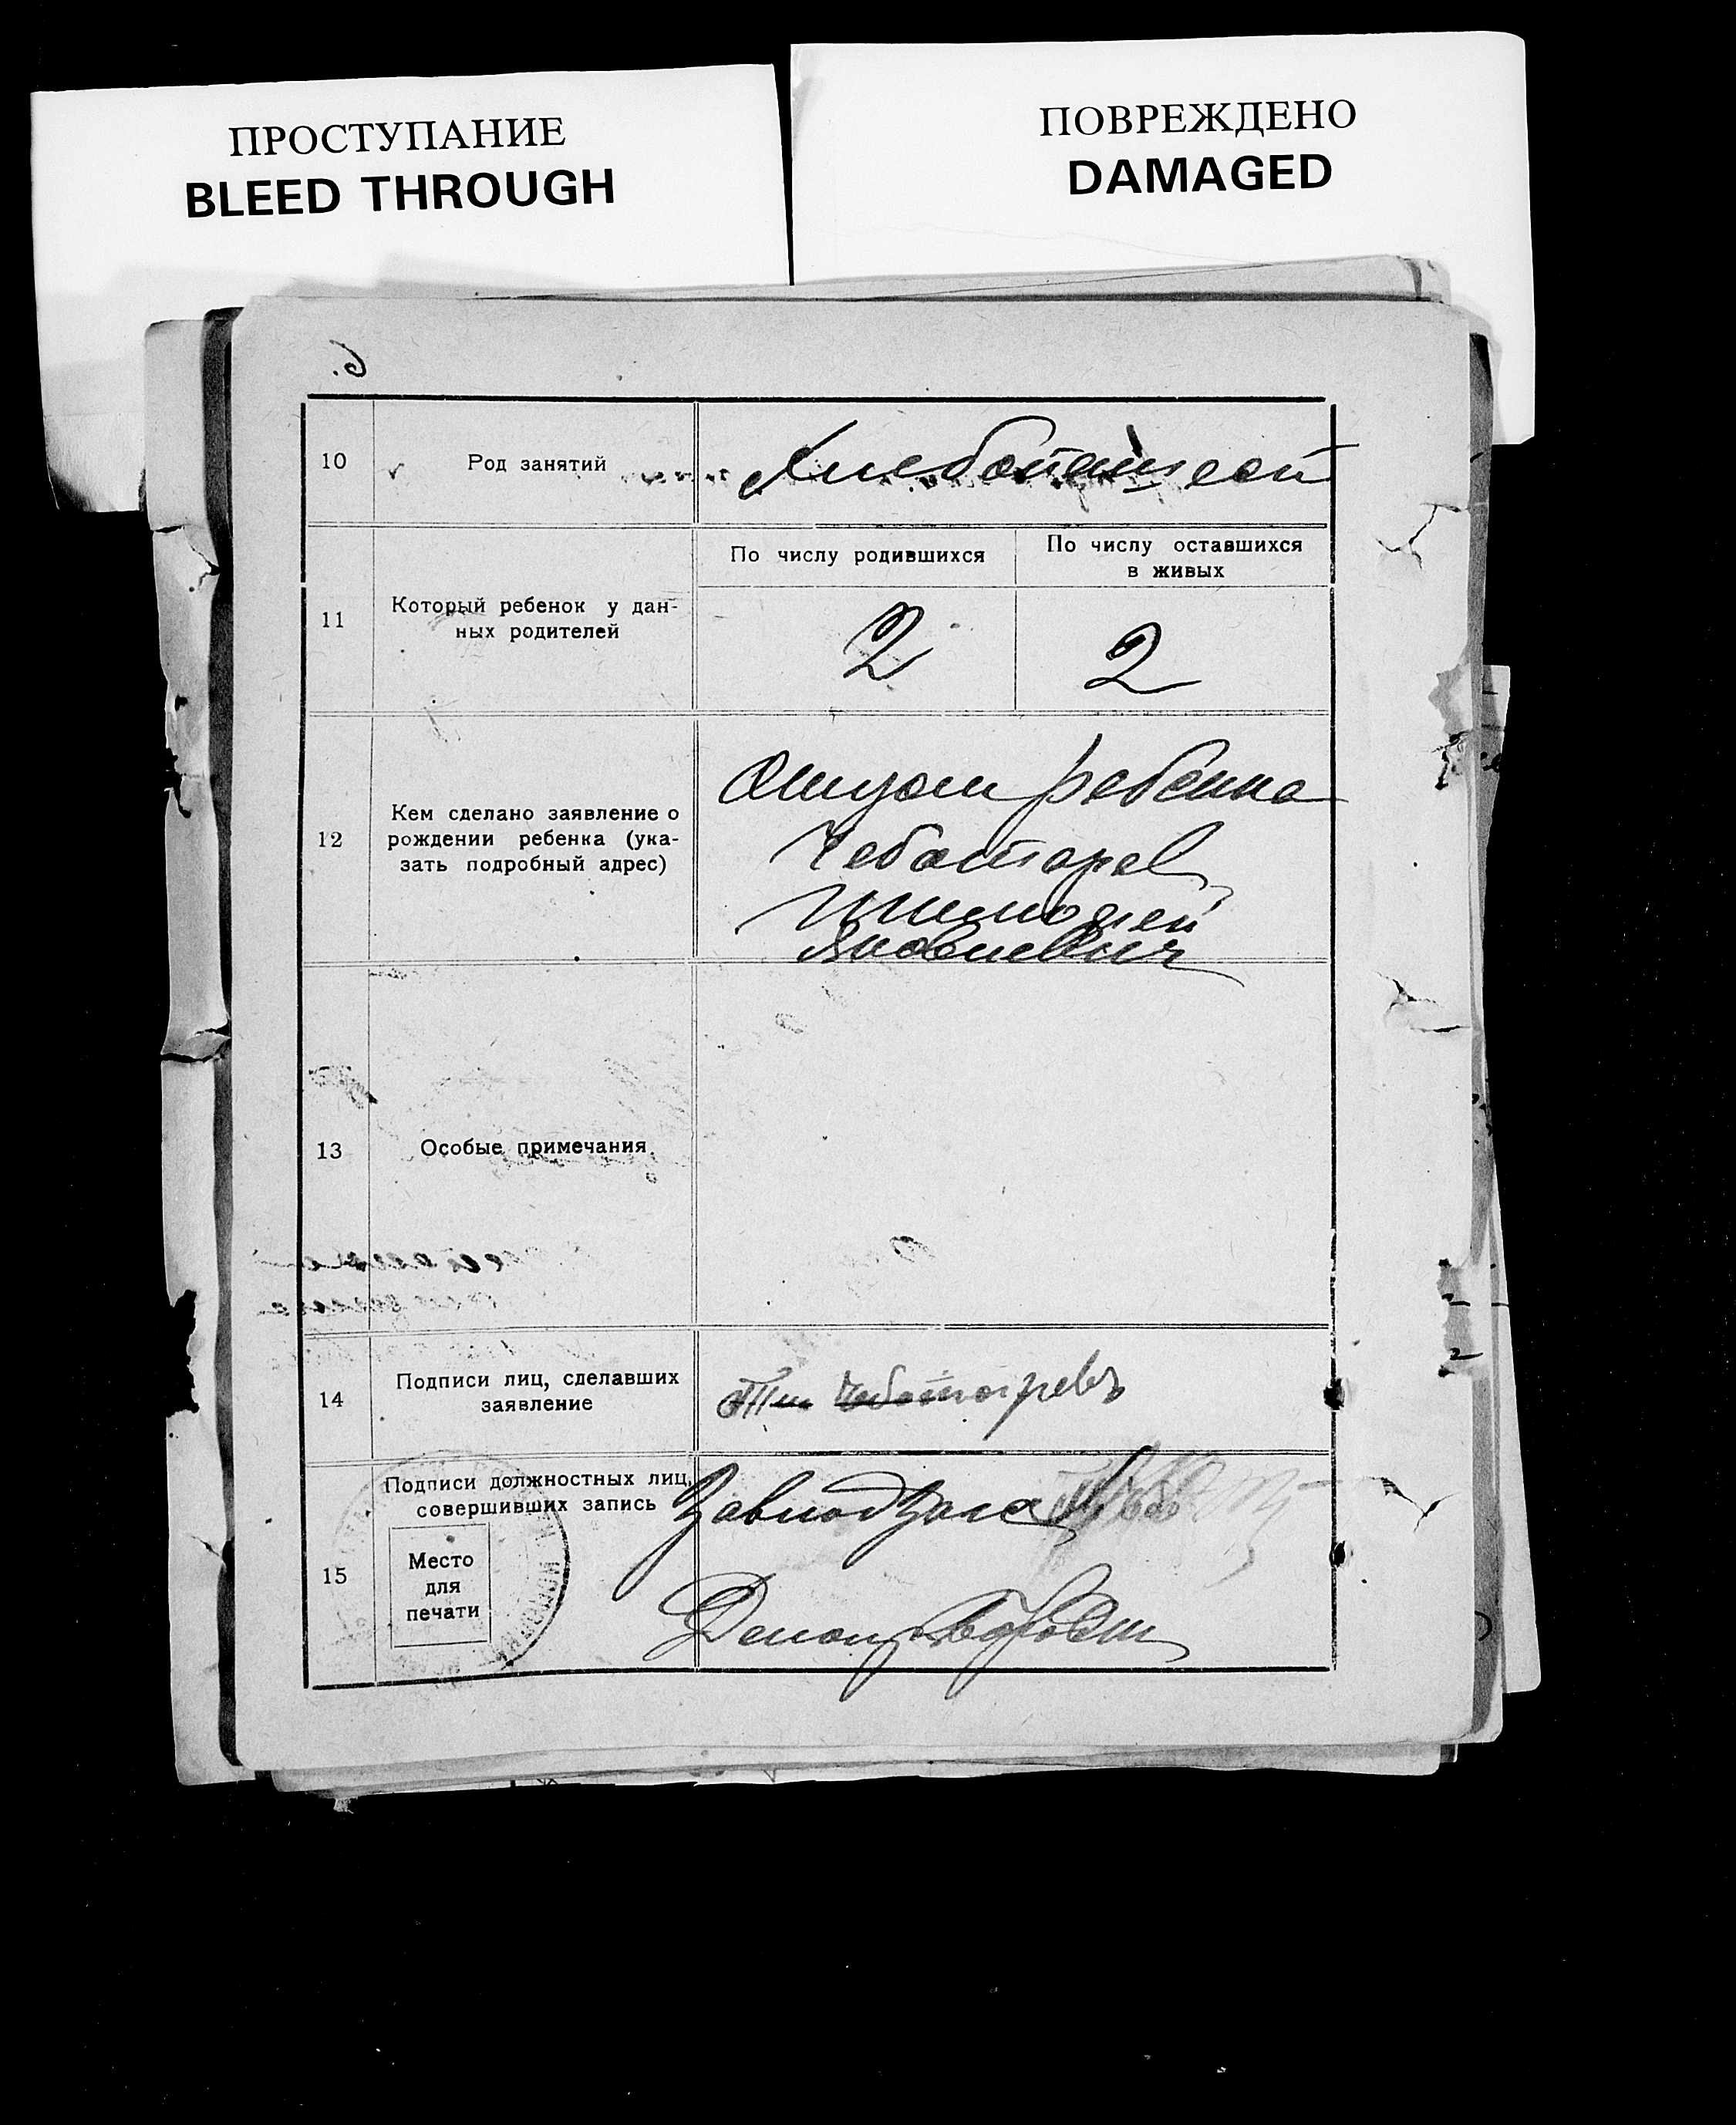 ПРОСТУПАНИЕ
BLEED THROUGH
ПОВРЕЖДЕНО
DAMAGED
6.
10 Род занятий Хлебопашест
11 Который ребенок у дан-
ных родителей
По числу родившихся
По числу оставшихся
в живых
2 2
12 Кем сделано заявление о
рождении ребенка (ука-
зать подробный адрес)
Отцом ребенка
Чеботарев
Тимофей
Яковлевич
13 Особые примечания
14 Подписи лиц, сделавших
заявление
Тим Чеботаревъ
15 Подписи должностных лиц,
совершивших запись
Место
для
печати
Завподзага
Делопр.